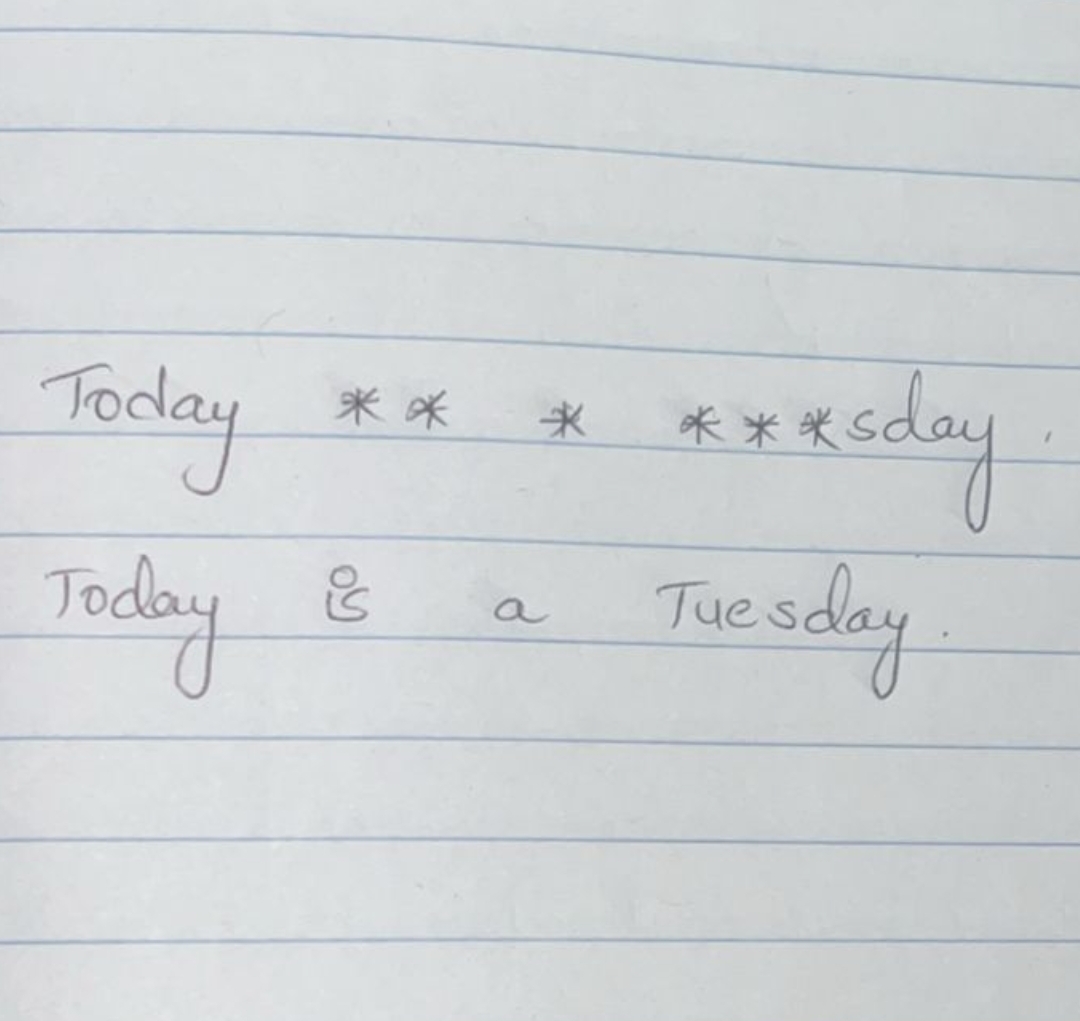 Today ** * ***sday.
Today is a Tuesday.